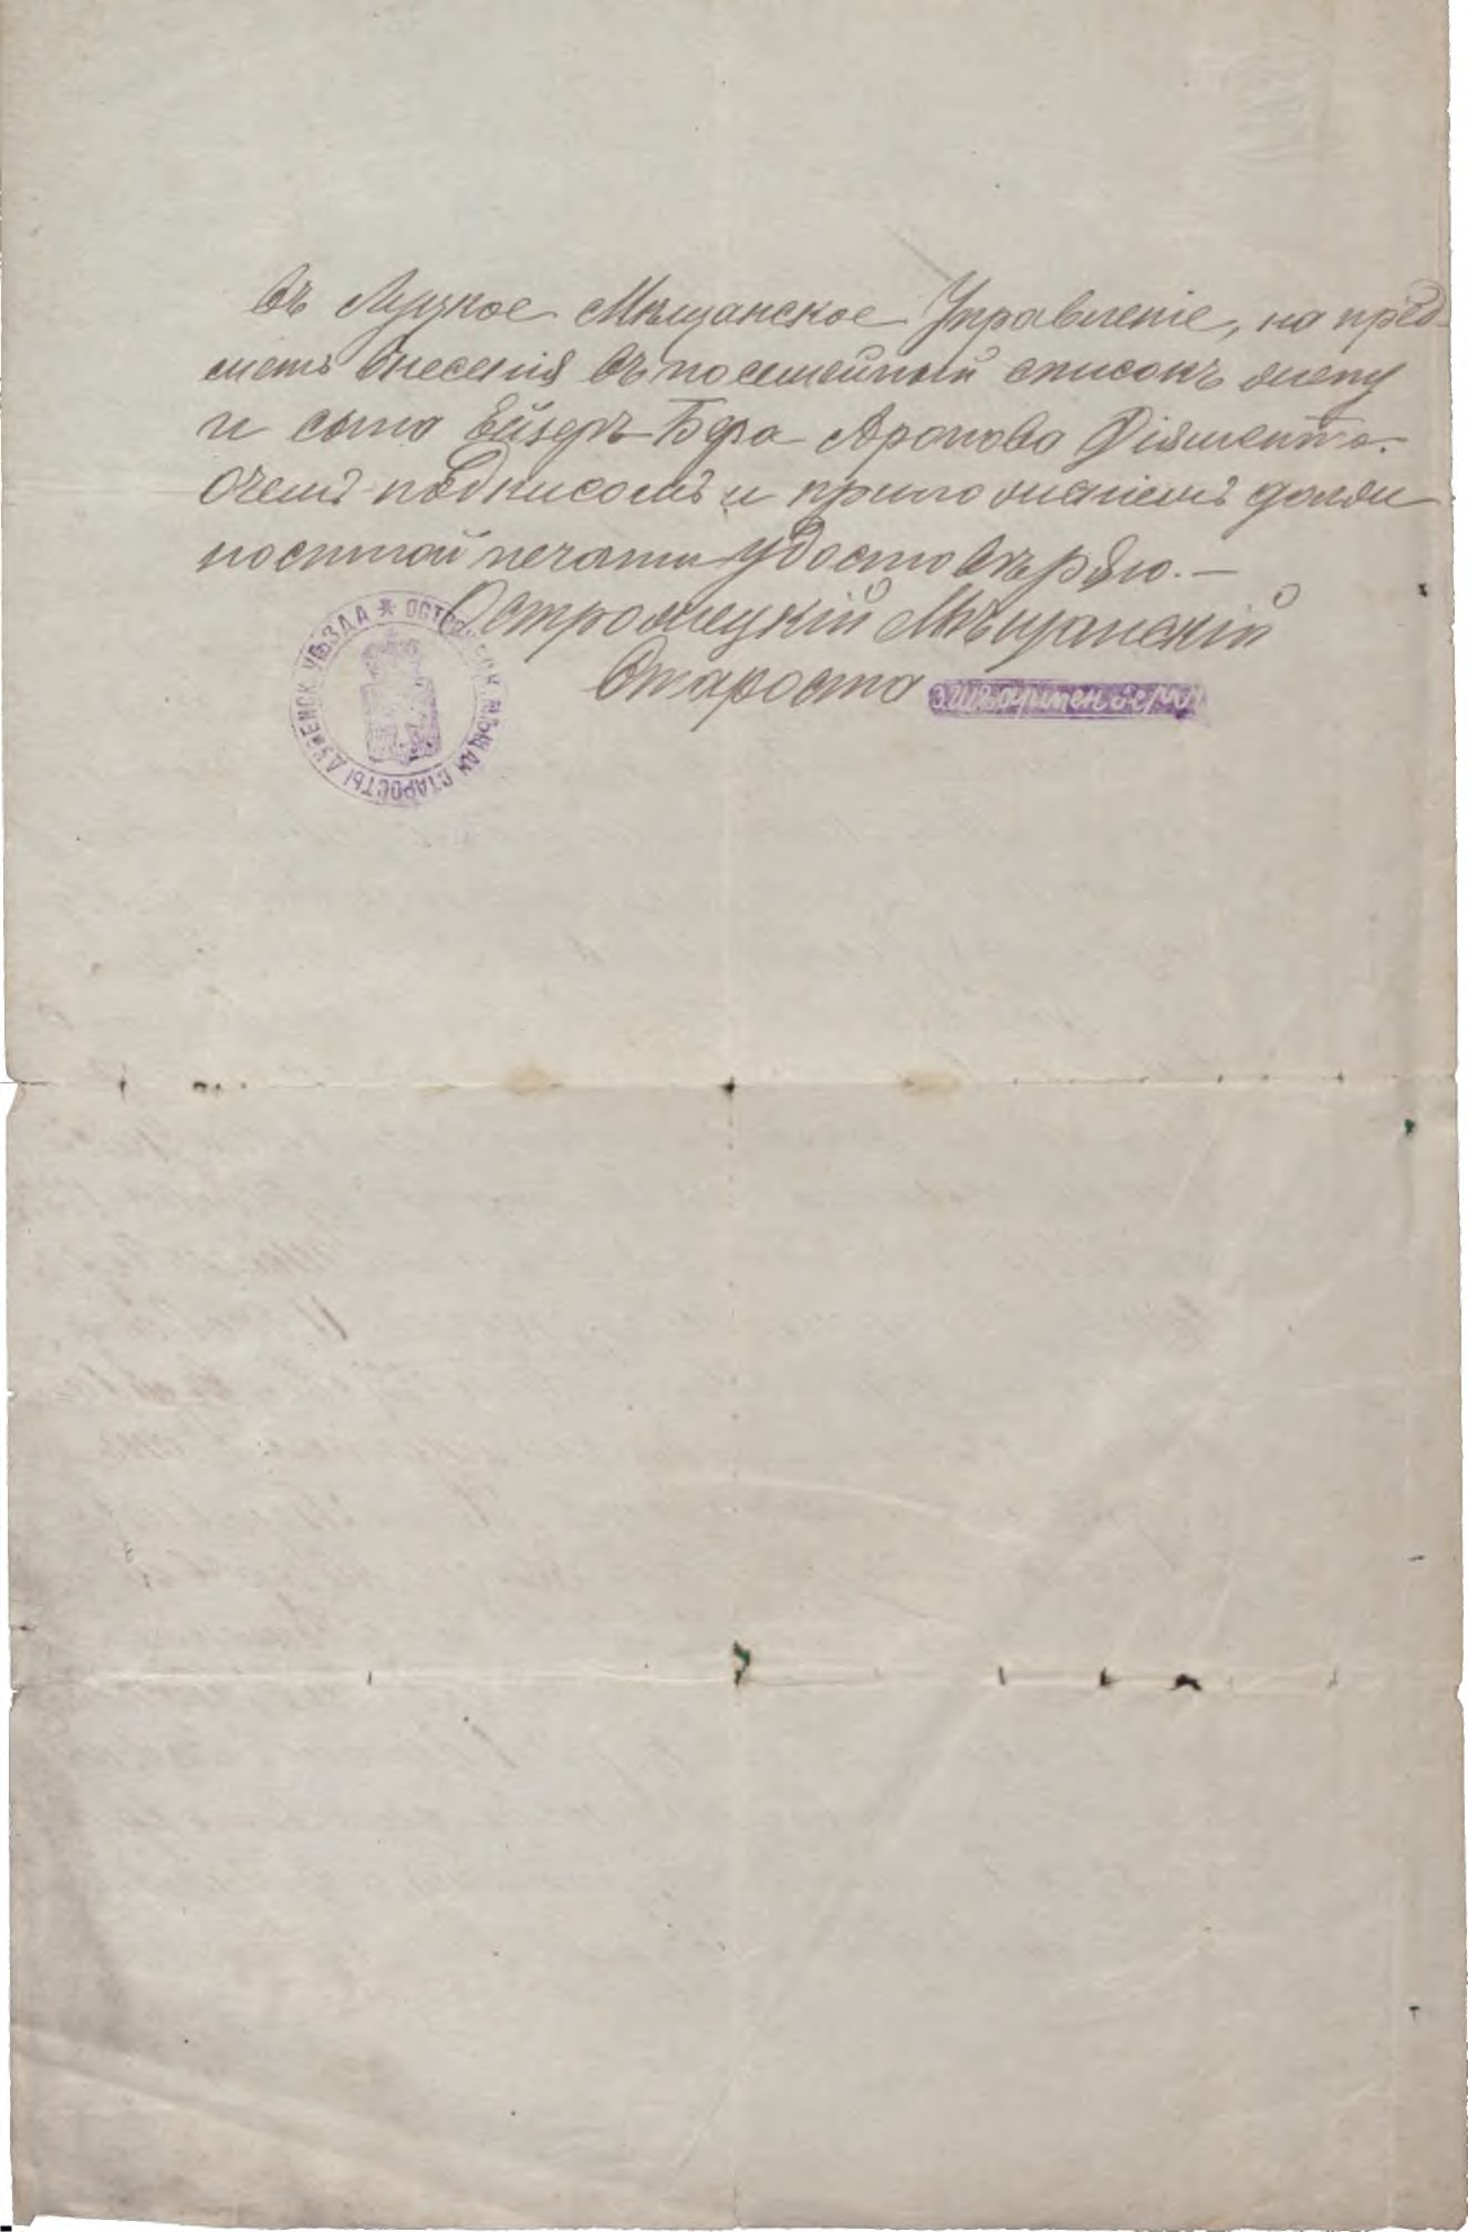 въ Луцкое Мѣщанское Управленіе, на пред-
метъ внесенія въ посемейный списокъ жену
и сына Ейзеръ-Бера Аронова Діаманта.
О чемъ подписомъ и приложеніемъ долж
ностной печати удостовѣряю. —
Острожецкій Мѣщанскій
Староста
ОСТРОЖЕЦК. МѢЩАН. СТАРОСТЫ ДУБЕНСК. УѢЗДА *